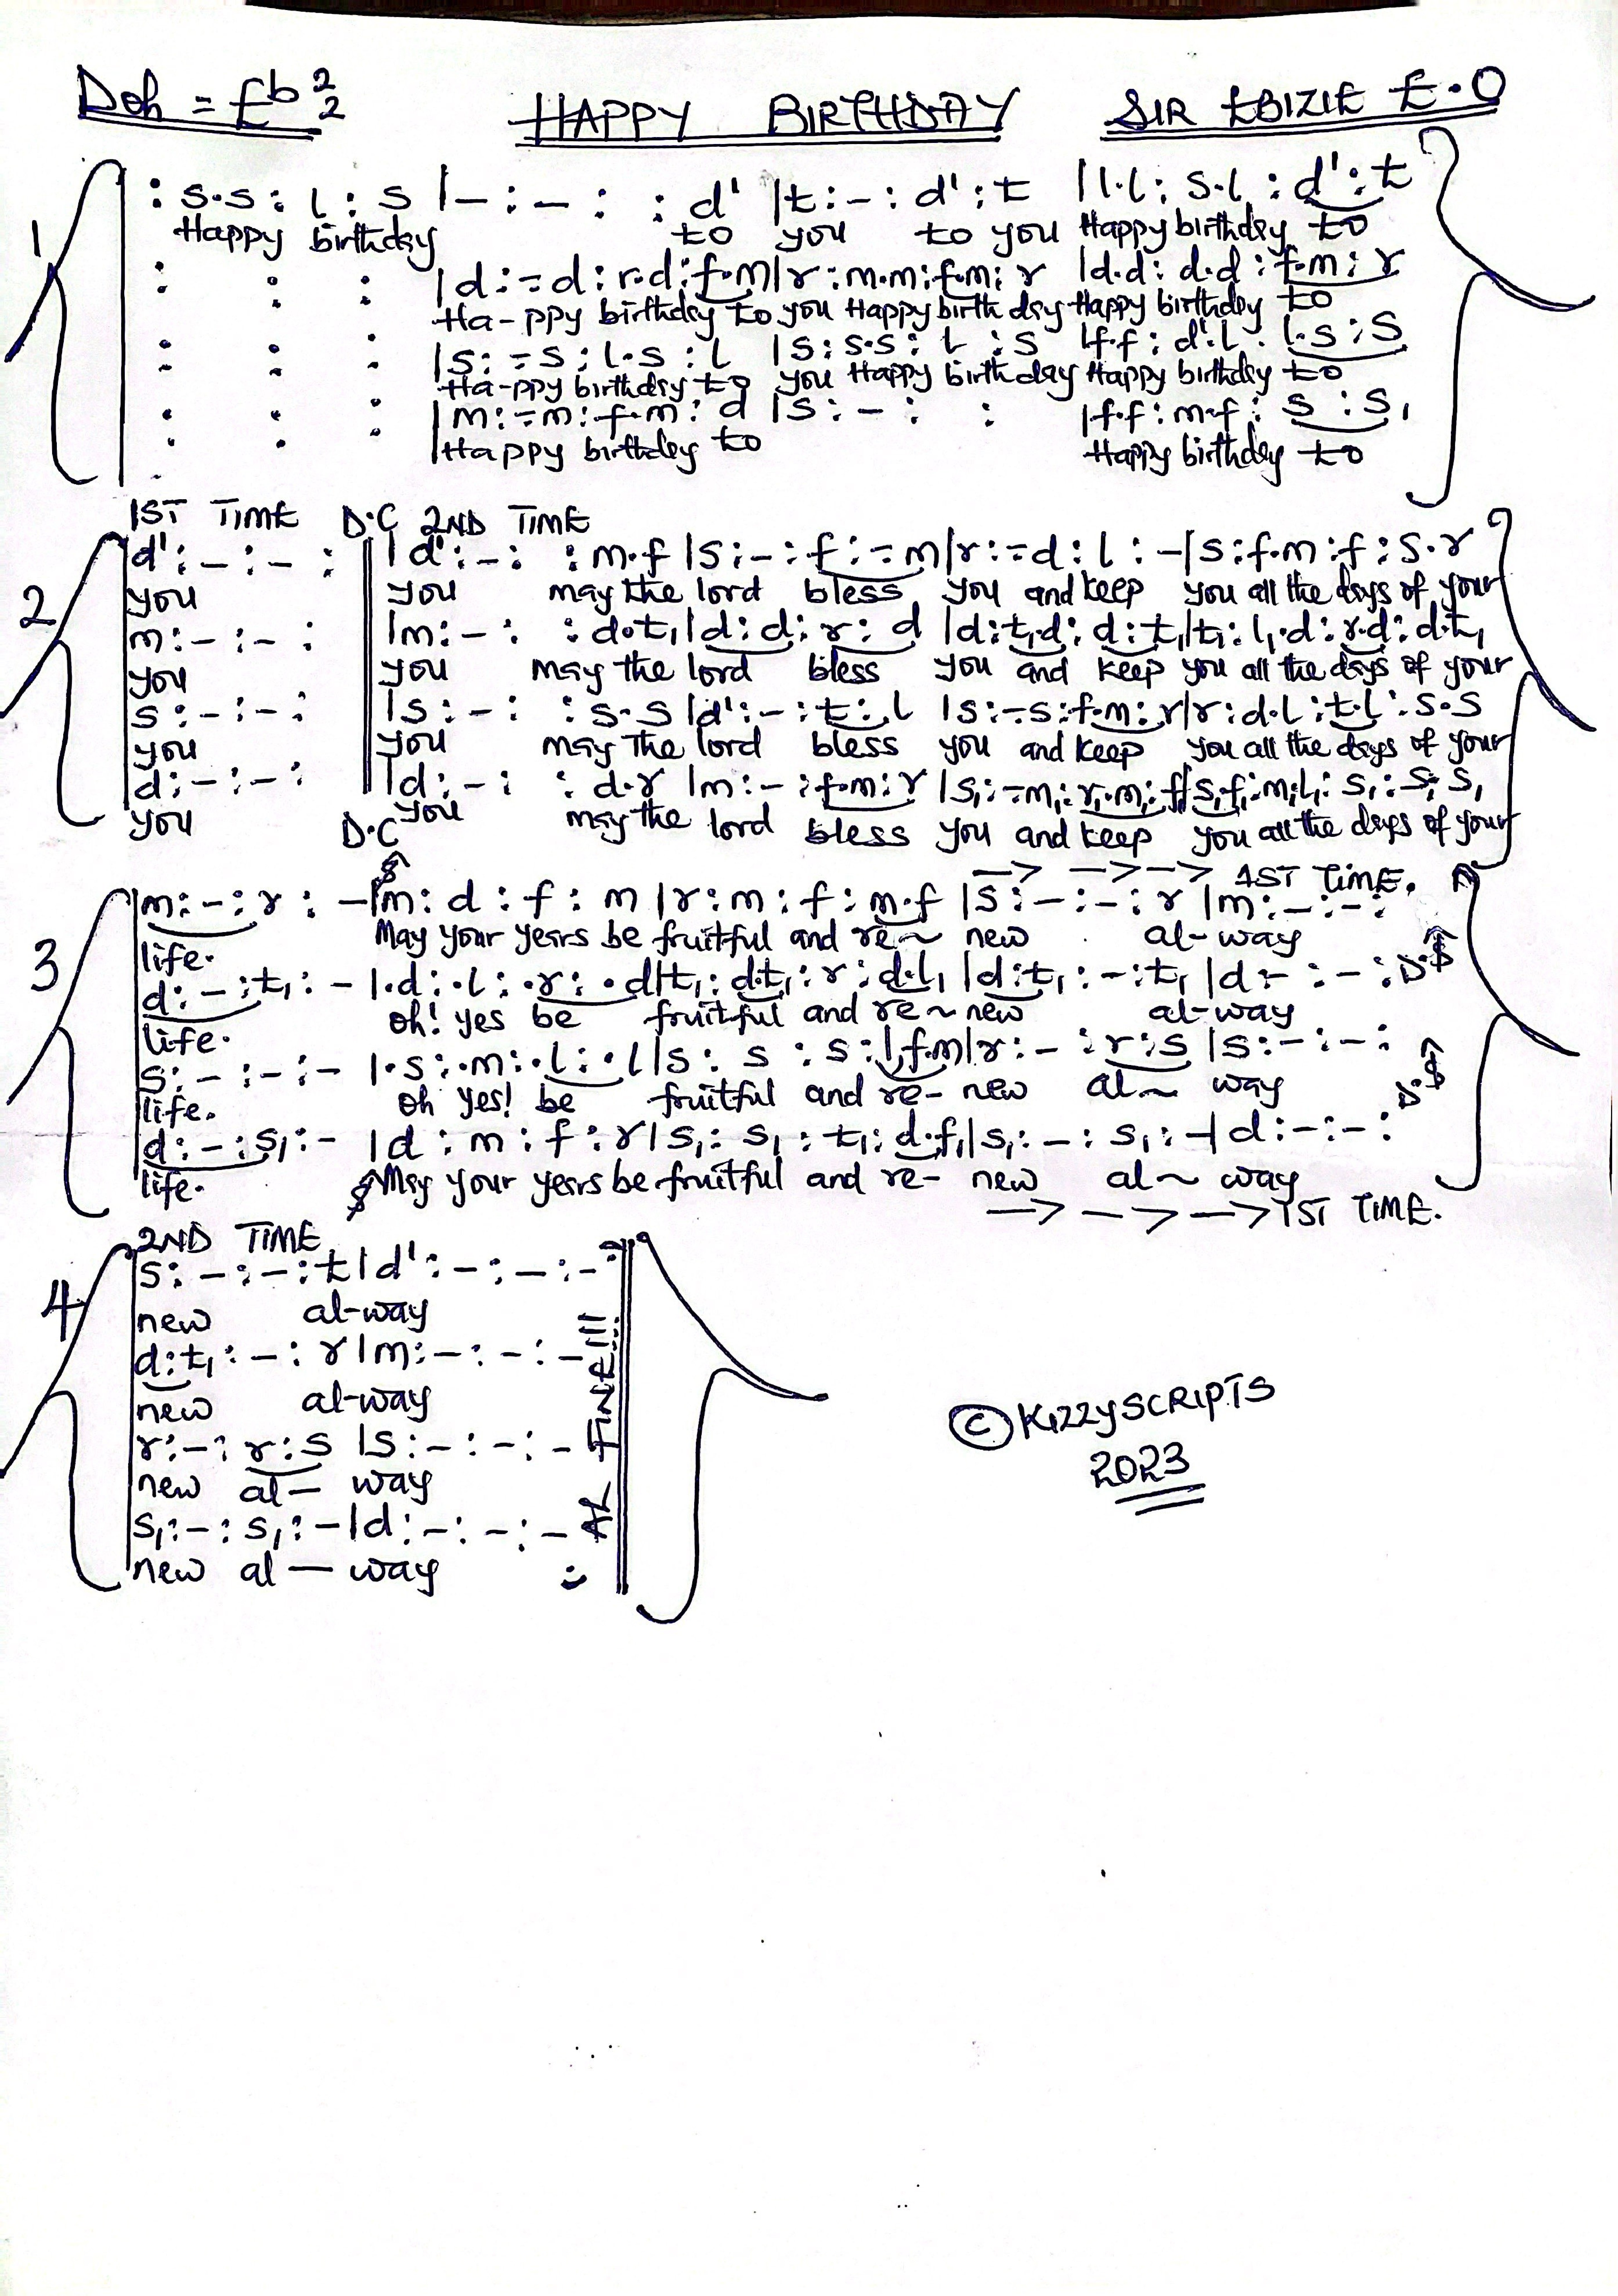 Doh = Eb 2/2 HAPPY BIRTHDAY SIR EBIZIE E.O
1
: s.s : l : s |- : - : : d' |t : - : d' : t |l.l : s.l : d' : t
Happy birthday to you to you Happy birthday to
: : : |d : - . d : r.d : f.m |r : m.m : f.m : r |d.d : d.d : f.m : r
Ha-ppy birthday to you Happy birthday Happy birthday to
: : : |s : - . s : l.s : l |s : s.s : l : s |f.f : d'.l : l.s : s
Ha-ppy birthday to you Happy birthday Happy birthday to
: : : |m : - . m : f.m : d |s : - : : |f.f : m.f : s : s,
Happy birthday to Happy birthday to
1ST TIME D.C 2ND TIME
2
d' : - : - : |d' : - : : m.f |s : - : f : - . m |r : - . d : l : - |s : f.m : f : s.r
you you may the lord bless you and keep you all the days of your
m : - : - : |m : - : : d.t, |d : d : r : d |d : t,.d : d : t, |t, : l,.d : r.d : d.t,
you you may the lord bless you and keep you all the days of your
s : - : - : |s : - : : s.s |d' : - : t : l |s : - . s : f.m : r |r : d.l : t.l : s.s
you you may the lord bless you and keep you all the days of your
d : - : - : |d : - : : d.r |m : - : f.m : r |s, : - . m, : r,.m, : f, |s,.f, : m,.l, : s, : s,.s,
you D.C you may the lord bless you and keep you all the days of your
–> –> –> 1ST TIME.
3
m : - : r : - |m : d : f : m |r : m : f : m.f |s : - : - : r |m : - : - :
life. May your years be fruitful and re~ new al-way
d : - : t, : - |.d : .l : .r : .d |t, : d.t, : r : d.l, |d : t, : - : t, |d : - : - : D.S
life. oh! yes be fruitful and re~ new al-way
s : - : - : - |.s : .m : .l : .l |s : s : s : l.f.m |r : - : r : s |s : - : - :
life. oh yes! be fruitful and re- new al~ way D.S
d : - : s, : - |d : m : f : r |s, : s, : t, : d.f, |s, : - : s, : - |d : - : - :
life. May your years be fruitful and re- new al~ way
–> –> –> 1ST TIME.
2ND TIME
4
s : - : - : t |d' : - : - : -
new al-way
d : t, : - : r |m : - : - : -
new al-way
r : - : r : s |s : - : - : -
new al- way
s, : - : s, : - |d : - : - : -
new al — way
AL FINE!!!
© KIZZYSCRIPTS
2023